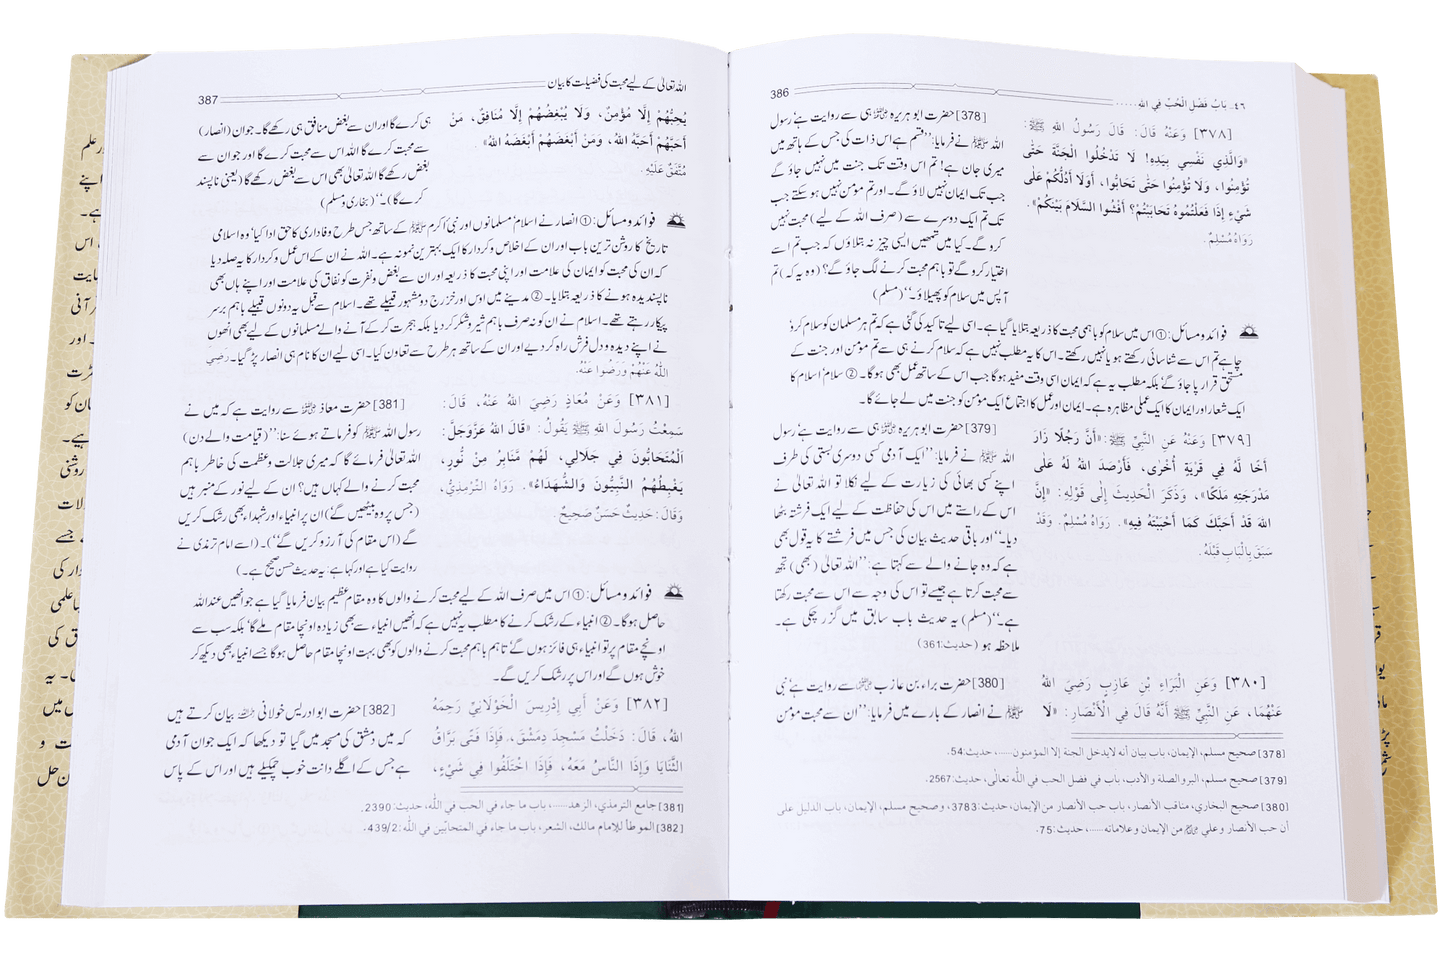 386
٤٦۔ بَابُ فَضْلِ الْحُبِّ فِي اللهِ .....
[٣٧٨] وَعَنْهُ قَالَ: قَالَ رَسُولُ اللهِ ﷺ:
«وَالَّذِي نَفْسِي بِيَدِهِ! لَا تَدْخُلُوا الْجَنَّةَ حَتَّى
تُؤْمِنُوا، وَلَا تُؤْمِنُوا حَتَّى تَحَابُّوا، أَوَلَا أَدُلُّكُمْ عَلَى
شَيْءٍ إِذَا فَعَلْتُمُوهُ تَحَابَبْتُمْ؟ أَفْشُوا السَّلَامَ بَيْنَكُمْ».
رَوَاهُ مُسْلِمٌ.
[378] حضرت ابو ہریرہ ﷜ ہی سے روایت ہے، رسول
اللہ ﷺ نے فرمایا: ’’قسم ہے اس ذات کی جس کے ہاتھ میں
میری جان ہے! تم اس وقت تک جنت میں نہیں جاؤ گے
جب تک ایمان نہیں لاؤ گے۔ اور تم مومن نہیں ہو سکتے جب
تک تم ایک دوسرے سے (صرف اللہ کے لیے) محبت نہیں
کرو گے۔ کیا میں تمھیں ایسی چیز نہ بتلاؤں کہ جب تم اسے
اختیار کرو گے تو باہم محبت کرنے لگ جاؤ گے؟ (وہ یہ کہ) تم
آپس میں سلام کو پھیلاؤ۔‘‘ (مسلم)
فوائد ومسائل: ① اس میں سلام کو باہمی محبت کا ذریعہ بتلایا گیا ہے۔ اسی لیے تاکید کی گئی ہے کہ تم ہر مسلمان کو سلام کرو
چاہے تم اس سے شناسائی رکھتے ہو یا نہیں رکھتے۔ اس کا یہ مطلب نہیں ہے کہ سلام کرنے ہی سے تم مومن اور جنت کے
مستحق قرار پا جاؤ گے بلکہ مطلب یہ ہے کہ ایمان اسی وقت مفید ہوگا جب اس کے ساتھ عمل بھی ہوگا۔ ② سلام اسلام کا
ایک شعار اور ایمان کا ایک عملی مظاہرہ ہے۔ ایمان اور عمل کا اجتماع ایک مومن کو جنت میں لے جائے گا۔
[٣٧٩] وَعَنْهُ عَنِ النَّبِيِّ ﷺ: «أَنَّ رَجُلًا زَارَ
أَخًا لَهُ فِي قَرْيَةٍ أُخْرَى، فَأَرْصَدَ اللهُ لَهُ عَلَى
مَدْرَجَتِهِ مَلَكًا»، وَذَكَرَ الْحَدِيثَ إِلَى قَوْلِهِ: «إِنَّ
اللهَ قَدْ أَحَبَّكَ كَمَا أَحْبَبْتَهُ فِيهِ». رَوَاهُ مُسْلِمٌ. وَقَدْ
سَبَقَ بِالْبَابِ قَبْلَهُ.
[379] حضرت ابو ہریرہ ﷜ ہی سے روایت ہے، رسول
اللہ ﷺ نے فرمایا: ’’ایک آدمی کسی دوسری بستی کی طرف
اپنے کسی بھائی کی زیارت کے لیے نکلا تو اللہ تعالیٰ نے
اس کے راستے میں اس کی حفاظت کے لیے ایک فرشتہ بٹھا
دیا۔‘‘ اور باقی حدیث بیان کی جس میں فرشتے کا یہ قول بھی
ہے کہ وہ جانے والے سے کہتا ہے: ’’اللہ تعالیٰ (بھی) تجھ
سے محبت کرتا ہے جیسے تو اس کی وجہ سے اس سے محبت رکھتا
ہے۔‘‘ (مسلم) یہ حدیث باب سابق میں گزر چکی ہے۔
ملاحظہ ہو (حدیث: 361)
[٣٨٠] وَعَنِ الْبَرَاءِ بْنِ عَازِبٍ رَضِيَ اللهُ
عَنْهُمَا، عَنِ النَّبِيِّ ﷺ أَنَّهُ قَالَ فِي الْأَنْصَارِ: «لَا
[380] حضرت براء بن عازب ﷠ سے روایت ہے، نبی
ﷺ نے انصار کے بارے میں فرمایا: ’’ان سے محبت مومن
[378] صحيح مسلم، الإيمان، باب بيان أنه لايدخل الجنة إلا المؤمنون......، حديث: 54.
[379] صحيح مسلم، البروالصلة والأدب، باب في فضل الحب في اللّٰه تعالٰى، حديث: 2567.
[380] صحيح البخاري، مناقب الأنصار، باب حب الأنصار من الإيمان، حديث: 3783، وصحيح مسلم، الإيمان، باب الدليل على
أن حب الأنصار وعلي ﷜ من الإيمان وعلاماته......، حديث: 75.
اللہ تعالیٰ کے لیے محبت کی فضیلت کا بیان
387
يُحِبُّهُمْ إِلَّا مُؤْمِنٌ، وَلَا يُبْغِضُهُمْ إِلَّا مُنَافِقٌ، مَنْ
أَحَبَّهُمْ أَحَبَّهُ اللهُ، وَمَنْ أَبْغَضَهُمْ أَبْغَضَهُ اللهُ».
مُتَّفَقٌ عَلَيْهِ.
ہی کرے گا اور ان سے بغض منافق ہی رکھے گا۔ جو ان (انصار)
سے محبت کرے گا اللہ اس سے محبت کرے گا اور جو ان سے
بغض رکھے گا اللہ تعالیٰ بھی اس سے بغض رکھے گا (یعنی ناپسند
کرے گا)۔‘‘ (بخاری ومسلم)
فوائد ومسائل: ① انصار نے اسلام، مسلمانوں اور نبی اکرم ﷺ کے ساتھ جس طرح وفاداری کا حق ادا کیا، وہ اسلامی
تاریخ کا روشن ترین باب اور ان کے اخلاص وکردار کا ایک بہترین نمونہ ہے۔ اللہ نے ان کے اس عمل وکردار کا یہ صلہ دیا
کہ ان کی محبت کو ایمان کی علامت اور اپنی محبت کا ذریعہ اور ان سے بغض و نفرت کو نفاق کی علامت اور اپنے ہاں بھی
ناپسندیدہ ہونے کا ذریعہ بتلایا۔ ② مدینے میں اوس اور خزرج دو مشہور قبیلے تھے۔ اسلام سے قبل یہ دونوں قبیلے باہم برسر
پیکار رہتے تھے۔ اسلام نے ان کو نہ صرف باہم شیروشکر کر دیا بلکہ ہجرت کر کے آنے والے مسلمانوں کے لیے بھی انھوں
نے اپنے دیدہ و دل فرش راہ کر دیے اور ان کے ساتھ ہر طرح سے تعاون کیا۔ اسی لیے ان کا نام ہی انصار پڑ گیا۔ رَضِيَ
اللّٰهُ عَنْهُمْ وَرَضُوا عَنْهُ.
[٣٨١] وَعَنْ مُعَاذٍ رَضِيَ اللهُ عَنْهُ، قَالَ:
سَمِعْتُ رَسُولَ اللهِ ﷺ يَقُولُ: «قَالَ اللهُ عَزَّوَجَلَّ:
الْمُتَحَابُّونَ فِي جَلَالِي، لَهُمْ مَنَابِرُ مِنْ نُورٍ،
يَغْبِطُهُمُ النَّبِيُّونَ وَالشُّهَدَاءُ». رَوَاهُ التِّرْمِذِيُّ،
وَقَالَ: حَدِيثٌ حَسَنٌ صَحِيحٌ.
[381] حضرت معاذ ﷜ سے روایت ہے کہ میں نے
رسول اللہ ﷺ کو فرماتے ہوئے سنا: ’’(قیامت والے دن)
اللہ تعالیٰ فرمائے گا کہ میری جلالت وعظمت کی خاطر باہم
محبت کرنے والے کہاں ہیں؟ ان کے لیے نور کے منبر ہیں
(جس پر وہ بیٹھیں گے) ان پر انبیاء اور شہداء بھی رشک کریں
گے (اس مقام کی آرزو کریں گے‘‘)۔ (اسے امام ترمذی نے
روایت کیا ہے اور کہا ہے: یہ حدیث حسن صحیح ہے۔)
فوائد ومسائل: ① اس میں صرف اللہ کے لیے محبت کرنے والوں کا وہ مقام عظیم بیان فرمایا گیا ہے جو انھیں عند اللہ
حاصل ہوگا۔ ② انبیاء کے رشک کرنے کا مطلب یہ نہیں ہے کہ انھیں انبیاء سے بھی زیادہ اونچا مقام ملے گا، بلکہ سب سے
اونچے مقام پر تو انبیاء ہی فائز ہوں گے، تاہم باہم محبت کرنے والوں کو بھی بہت اونچا مقام حاصل ہوگا جسے انبیاء بھی دیکھ کر
خوش ہوں گے اور اس پر رشک کریں گے۔
[٣٨٢] وَعَنْ أَبِي إِدْرِيسَ الْخَوْلَانِيِّ رَحِمَهُ
اللهُ، قَالَ: دَخَلْتُ مَسْجِدَ دِمَشْقَ، فَإِذَا فَتًى بَرَّاقُ
الثَّنَايَا وَإِذَا النَّاسُ مَعَهُ، فَإِذَا اخْتَلَفُوا فِي شَيْءٍ،
[382] حضرت ابو ادریس خولانی ﷫ بیان کرتے ہیں
کہ میں دمشق کی مسجد میں گیا تو دیکھا کہ ایک جوان آدمی
ہے جس کے اگلے دانت خوب چمکیلے ہیں اور اس کے پاس
[381] جامع الترمذي، الزهد......، باب ما جاء في الحب في اللّٰه، حديث: 2390.
[382] الموطأ للإمام مالك، الشعر، باب ما جاء في المتحابّين في اللّٰه: 439/2.